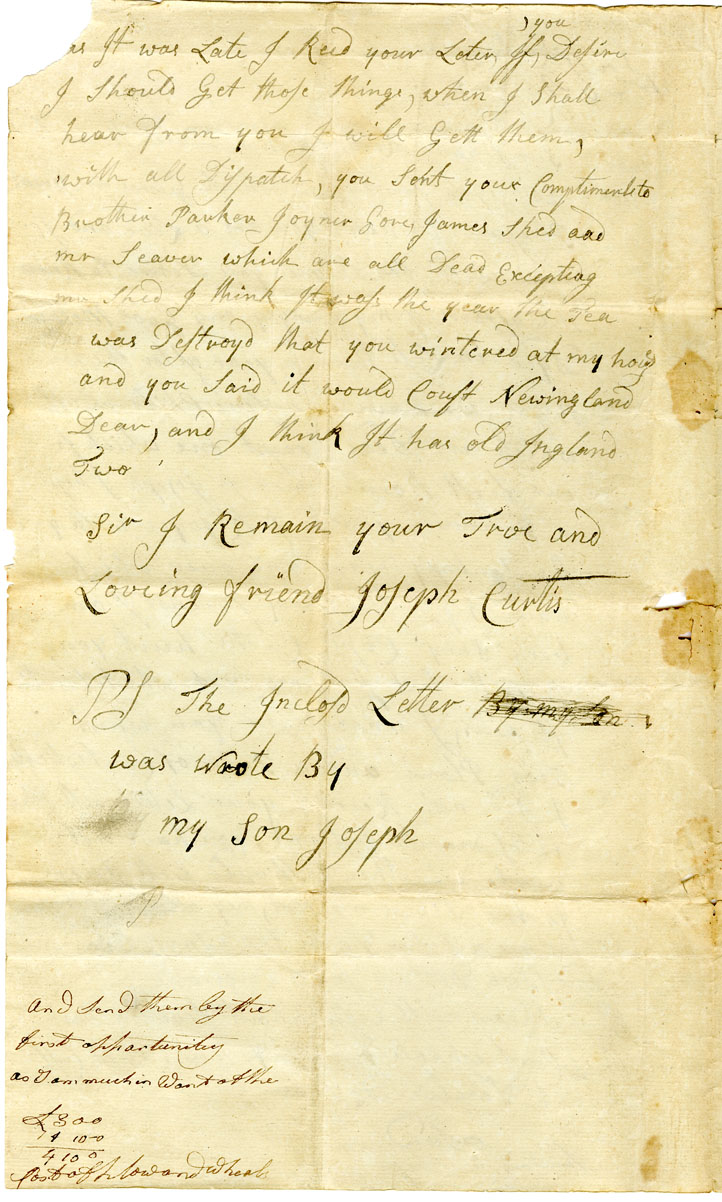 as It was Late I Recd your Later, If, you Desire
I Should Get those things, when I Shall
hear from you I will Gett them,
with all Dispatch, you Sent your Compliments to
Brother Parker Joyner Gore, James Shed and
mr Seaver which are all Dead Excepting
mr Shed I think It wass the year the Tea
was Destroyd that you wintered at my
and you Said it would Coust Newingland
Dear, and I think It has old Ingland
Two
Sir I Remain your Troe and
Loveing friend Joseph Curtis
PS The Inclosd Letter By my Son
was Wrote By
my Son Joseph
P
And Send them by the
first oppartunity
as I am much in Want of the
£3 0 0
1 4 10 0
4 10 0
Cost of Plow and Wheels